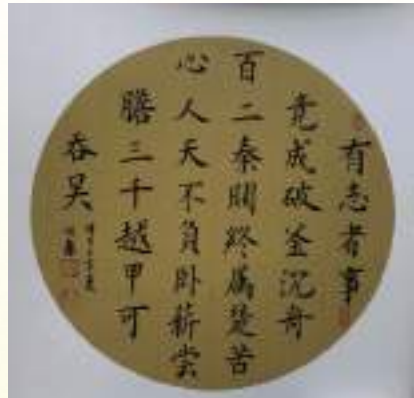 有志者事
竟成破釜沉舟
百二秦關終屬楚苦
心人天不負臥薪尝
膽三千越甲可
吞吴